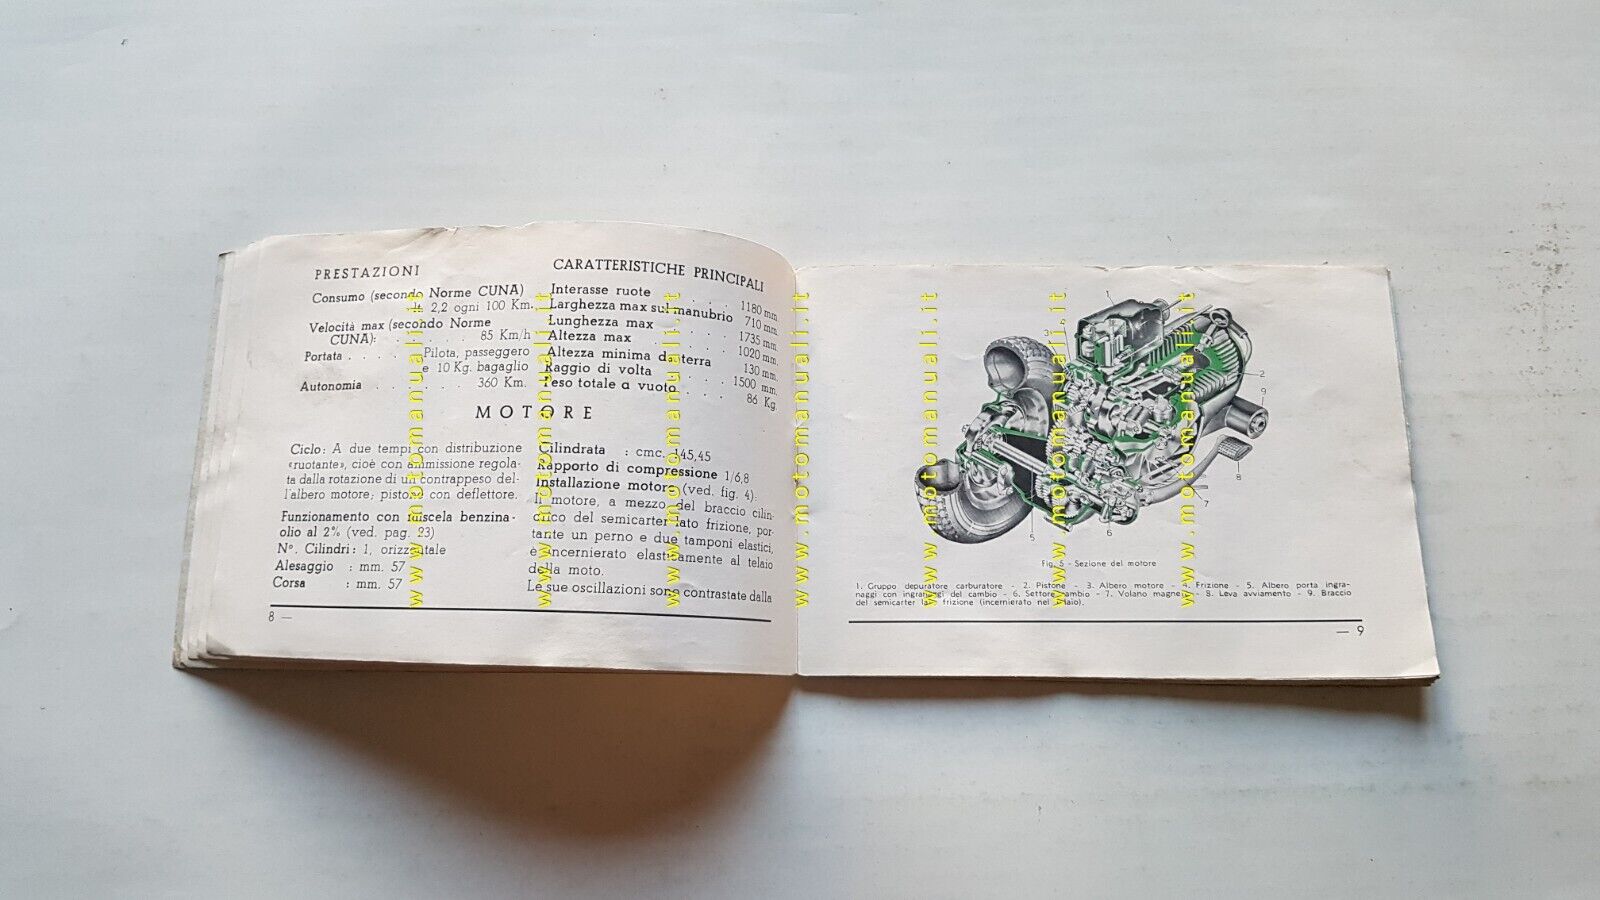 PRESTAZIONI
Consumo (secondo Norme CUNA)
lt. 2,2 ogni 100 Km.
Velocità max (secondo Norme
CUNA): . . . . . . 85 Km/h
Portata . . . . Pilota, passeggero
e 10 Kg. bagaglio
Autonomia . . . . . . 360 Km.
CARATTERISTICHE PRINCIPALI
Interasse ruote . . . . 1180 mm.
Larghezza max sul manubrio 710 mm.
Lunghezza max . . . . 1735 mm.
Altezza max . . . . . 1020 mm.
Altezza minima da terra 130 mm.
Raggio di volta . . . . 1500 mm.
Peso totale a vuoto . . . 86 Kg.
MOTORE
Ciclo: A due tempi con distribuzione
«ruotante», cioè con ammissione regola-
ta dalla rotazione di un contrappeso del-
l'albero motore; pistone con deflettore.
Funzionamento con miscela benzina-
olio al 2% (ved. pag. 23)
N°. Cilindri: 1, orizzontale
Alesaggio : mm. 57
Corsa : mm. 57
Cilindrata : cmc. 145,45
Rapporto di compressione 1/6,8
Installazione motore (ved. fig. 4):
Il motore, a mezzo del braccio cilin-
drico del semicarter lato frizione, por-
tante un perno e due tamponi elastici,
è incernierato elasticamente al telaio
della moto.
Le sue oscillazioni sono contrastate dalla
8 —
1
4
3
2
9
8
7
6
5
Fig. 5 - Sezione del motore
1. Gruppo depuratore carburatore - 2. Pistone - 3. Albero motore - 4. Frizione - 5. Albero porta ingra-
naggi con ingranaggi del cambio - 6. Settore cambio - 7. Volano magnete - 8. Leva avviamento - 9. Braccio
del semicarter lato frizione (incernierato nel telaio).
— 9
www.motomanuali.it
www.motomanuali.it
www.motomanuali.it
www.motomanuali.it
www.motomanuali.it
www.motomanuali.it
www.motomanuali.it